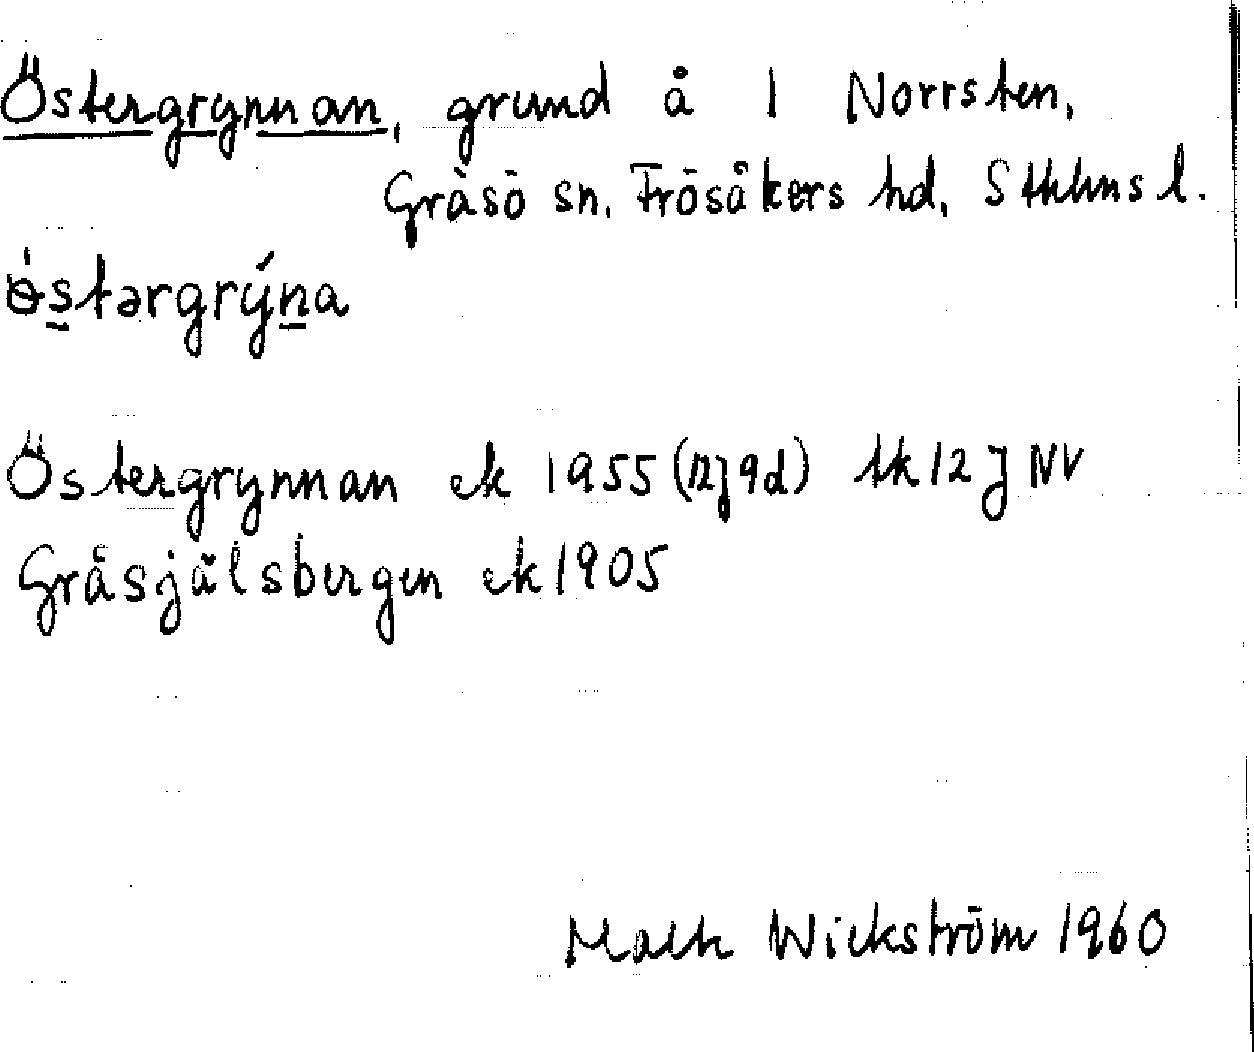 Östergrynnan, grund å 1 Norrsten,
Gräsö sn. Frösåkers hd, Sthlms l.
ɵ́stərgrýna
Östergrynnan ek 1955 (12J9d) tk 12 J NV
Gråsjälsbergen ek 1905
Wickström 1960